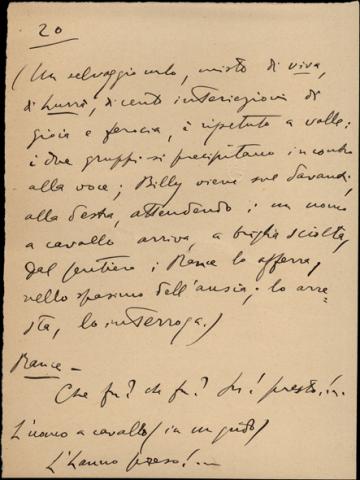 20
(Un selvaggio urlo, misto di viva,
di hurrà, di cento interiezioni di
gioia e ferocia, è ripetuto a valle;
i due gruppi si precipitano incontro
alla voce; Billy viene sul davanti,
alla destra, attendendo; un uomo
a cavallo arriva, a briglia sciolta,
dal sentiero; Rance lo afferra,
nello spasimo dell'ansia; lo arre-
sta, lo interroga.)
Rance –
Che fu? che fu? Su! presto!...
L'uomo a cavallo (in un grido)
L'hanno preso!...